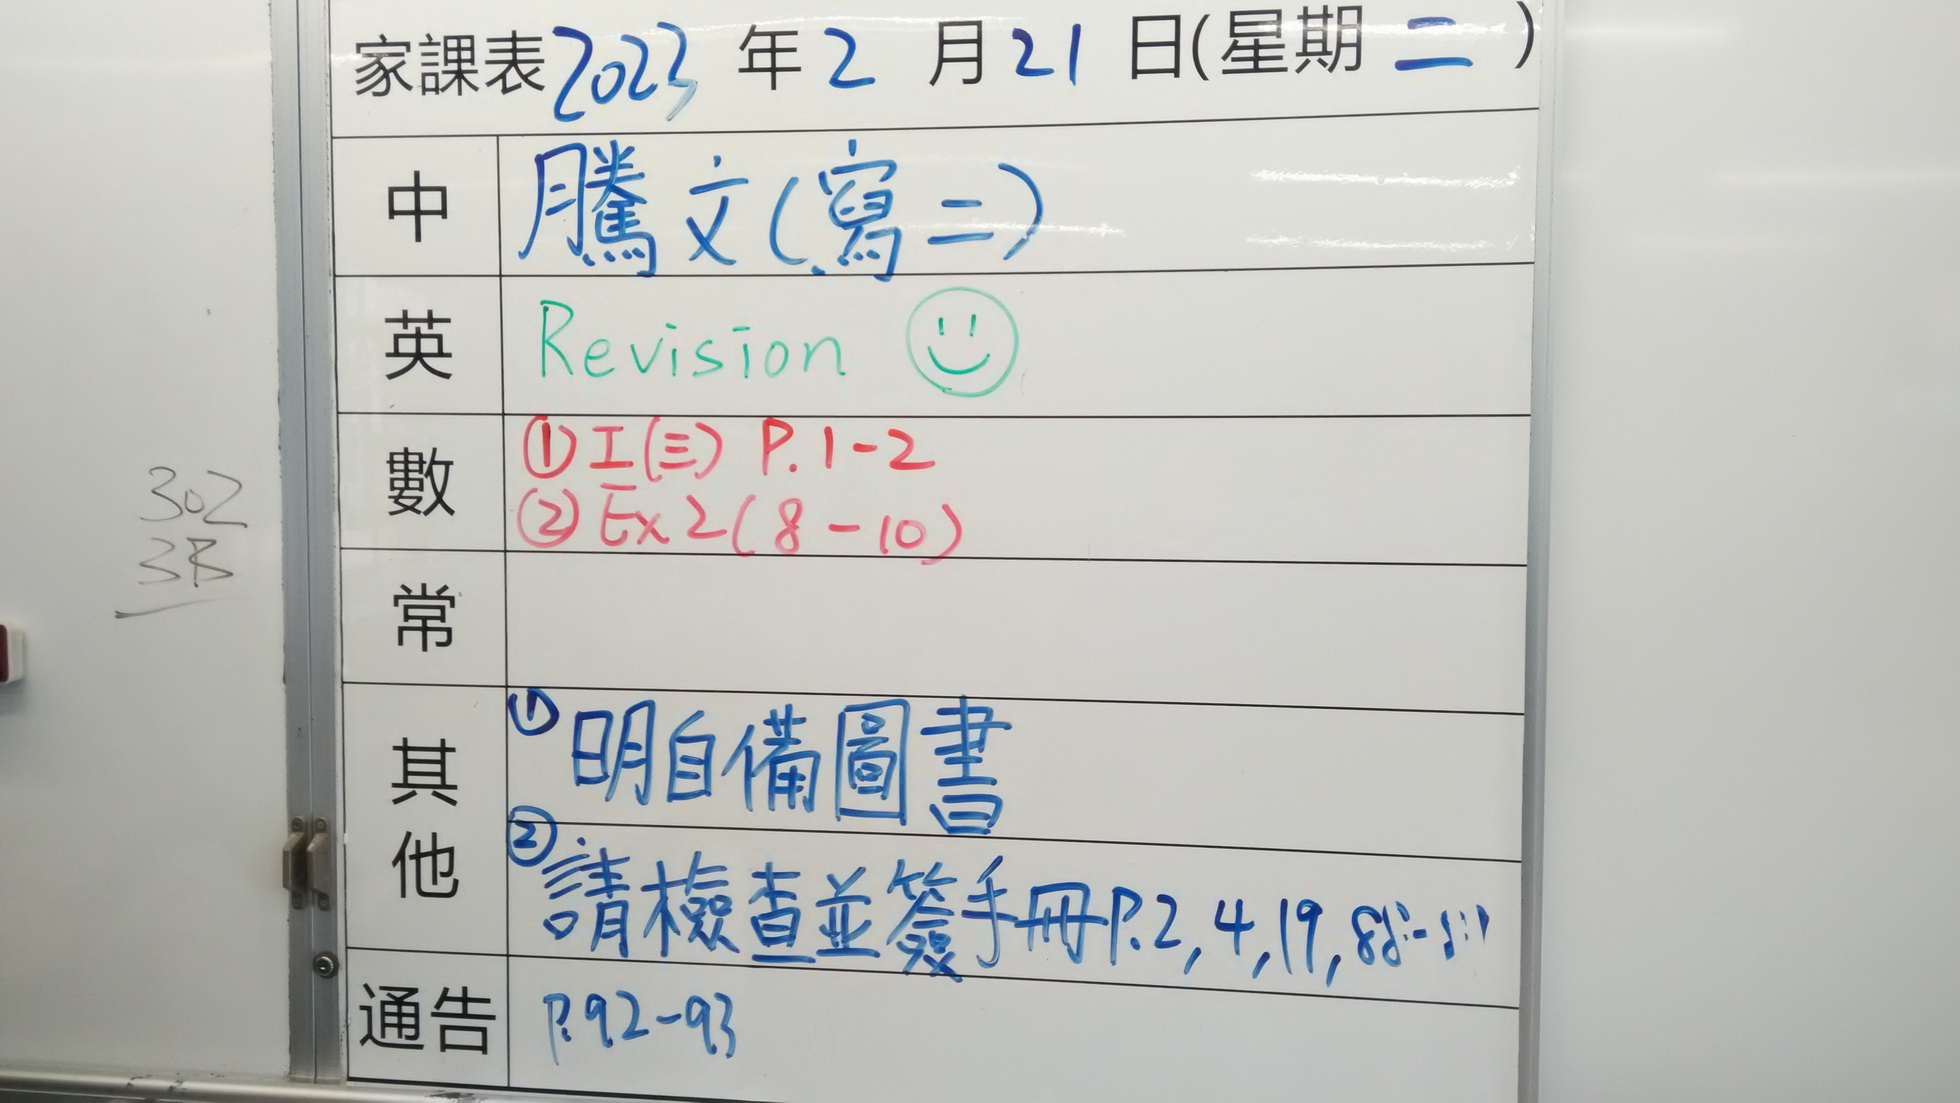 家課表 2023 年 2 月 21 日(星期 二 )
中 騰文(寫二)
英 Revision
數 ① I(三) P. 1-2
② Ex 2 ( 8 - 10 )
常
其他 ① 明自備圖書
② 請檢查並簽手冊 P. 2, 4, 19,
通告 P. 92-93
302
3B